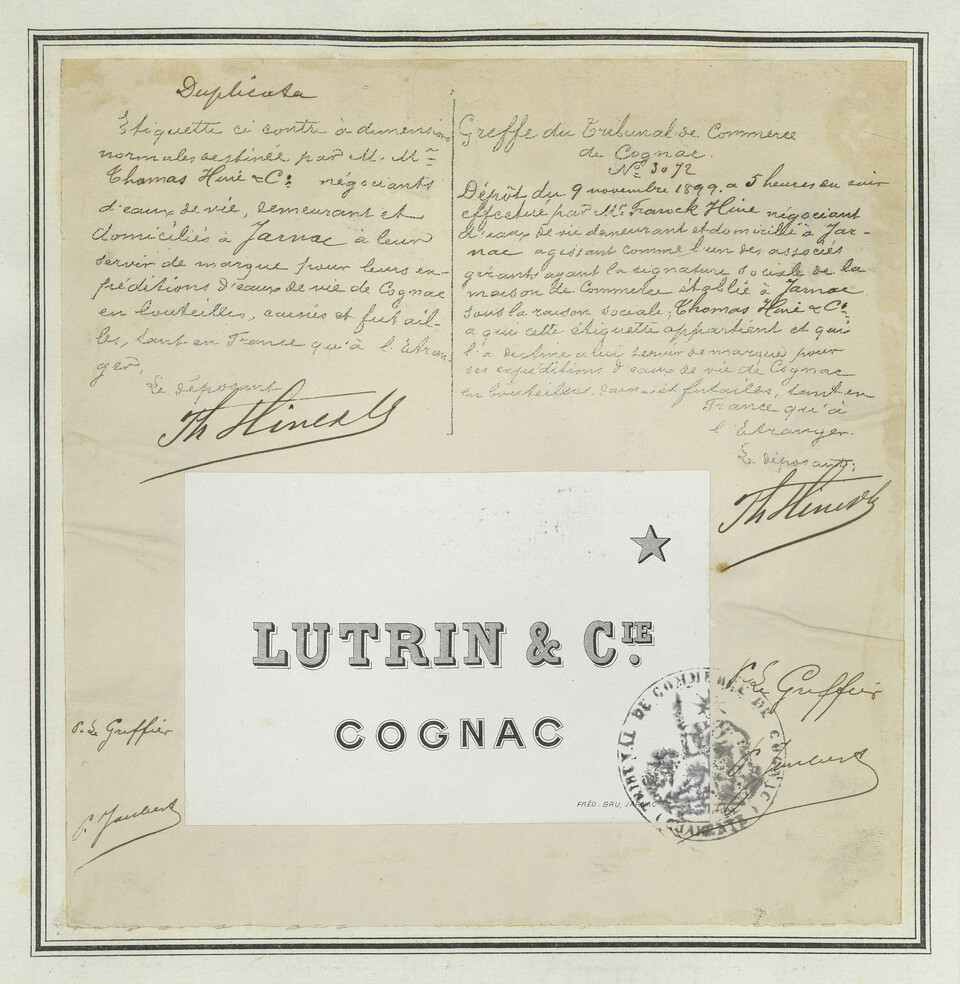 Duplicata
Etiquette ci contre à dimensions
normales destinée par M. Mrs
Thomas Hine & Cie négociants
d'eaux de vie, demeurant et
domiciliés à Jarnac à leur
servir de marque pour leurs ex-
péditions d'eaux de vie de Cognac
en bouteilles, caisses et futail-
les, tant en France qu'à l'Etran-
ger.
Le déposant
Th Hine & Co
Greffe du Tribunal de Commerce
de Cognac.
No 3072
Dépôt du 9 novembre 1899 à 5 heures du soir
effectué par Mr Franck Hine négociant
d'eaux de vie demeurant et domicilié à Jar-
nac agissant comme l'un des associés
gérants ayant la signature sociale de la
maison de Commerce établie à Jarnac
sous la raison sociale, Thomas Hine & Cie
à qui cette étiquette appartient et qui
l'a destine à lui servir de marque pour
ses expéditions d'eaux de vie de Cognac
en bouteilles, caisses et futailles, tant en
France qu'à
l'Etranger.
Le déposant;
Th Hine & Co
LUTRIN & CIE.
COGNAC
FRÉD. BRU, JARNAC
TRIBUNAL DE COMMERCE DE COGNAC
P. Le Greffier
P. Le Greffier